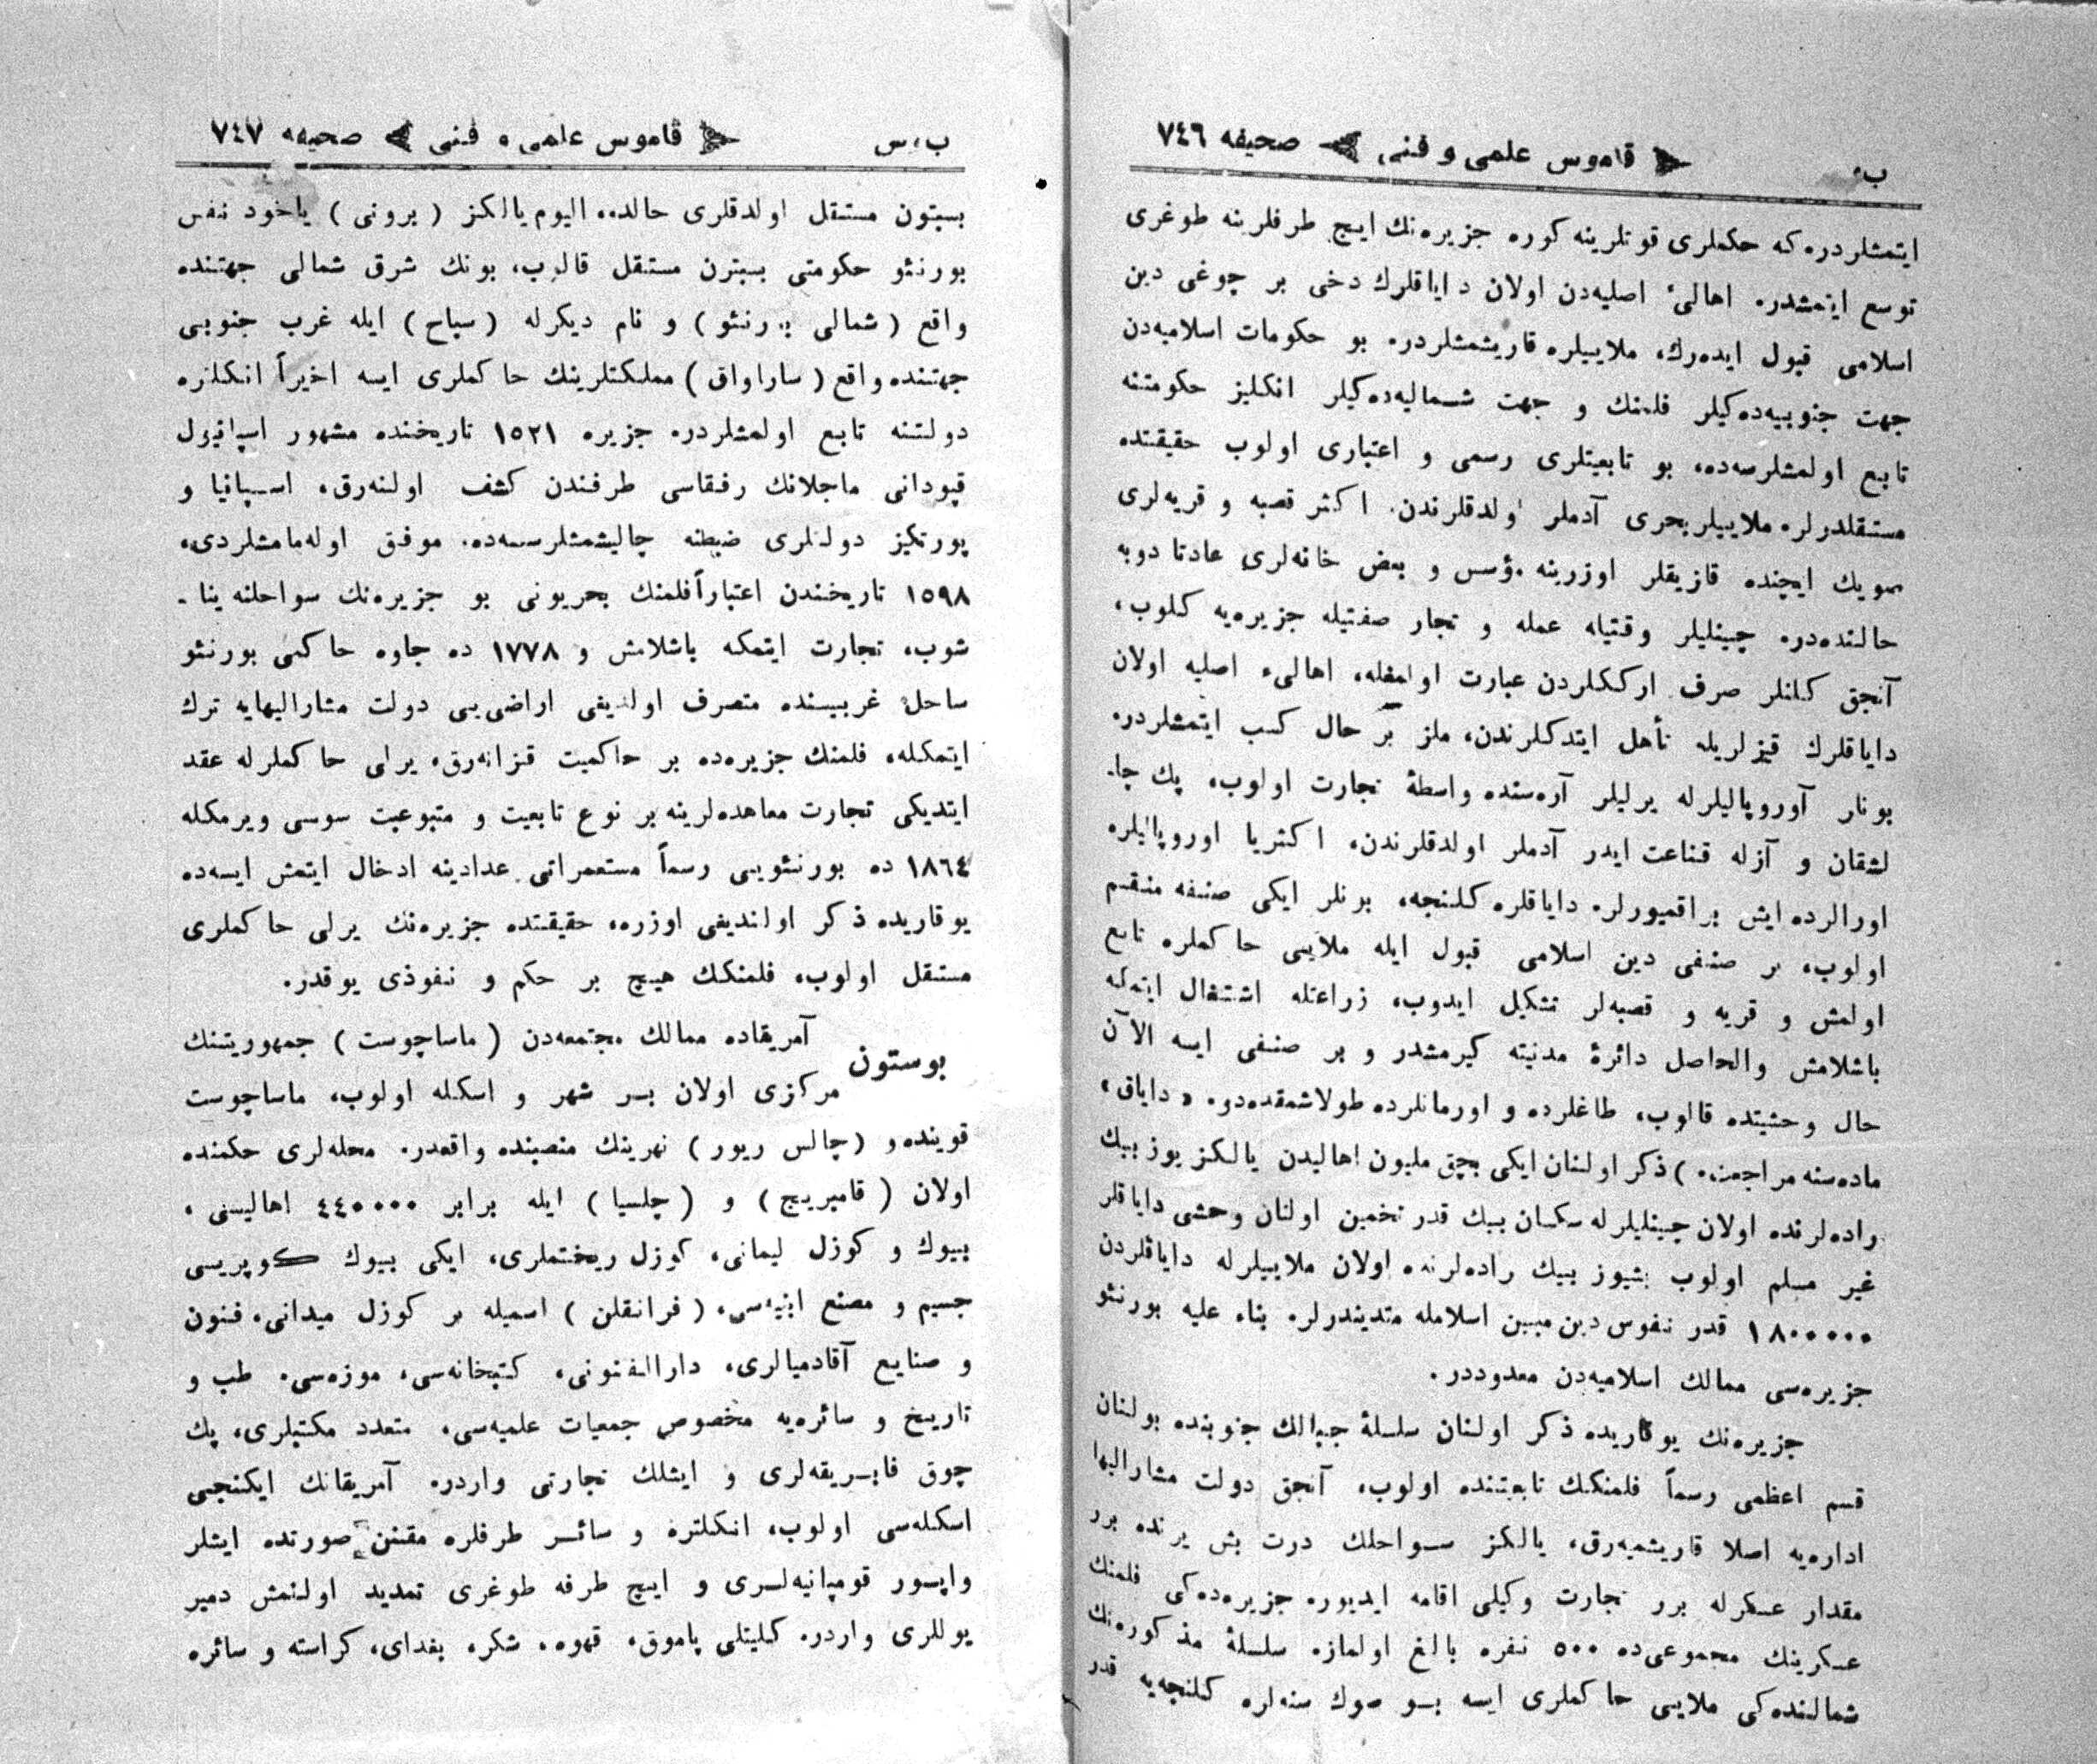 ب، قاموس علمی و فنی صحیفه ٧٤٦
ایتمشلردر، که حکملری قوتلرینه کوره جزیره‌نك ایچ طرفلرینه طوغری
توسع ایتمشدر. اهالیٔ اصلیه‌دن اولان دایاقلرك دخی بر چوغی دین
اسلامی قبول ایده‌رك، ملاییلره قاریشمشلردر. بو حکومات اسلامیه‌دن
جهت جنوبیه‌ده‌کیلر فلمنك و جهت شمالیه‌ده‌کیلر انکلیز حکومتنه
تابع اولمشلرسه‌ده، بو تابعیتلری رسمی و اعتباری اولوب حقیقتده
مستقلدرلر. ملاییلر بحری آدملر اولدقلرندن، اکثر قصبه و قریه‌لری
صویك ایچنده قازیقلر اوزرینه مؤسس و بعض خانه‌لری عادتا دوبه
حالنده‌در. چینلیلر وقتیله عمله و تجار صفتیله جزیره‌یه کلوب،
آنجق کلنلر صرف ارککلردن عبارت اولمغله، اهالیء اصلیه اولان
دایاقلرك قیزلریله تأهل ایتدکلرندن، ملز بر حال کسب ایتمشلردر.
بونلر آوروپالیلرله یرلیلر آره‌سنده واسطهٔ تجارت اولوب، پك چا-
لشقان و آزله قناعت ایدر آدملر اولدقلرندن، اکثریا اوروپالیلره
اورالرده ایش براقمیورلر. دایاقلره کلنجه، بونلر ایکی صنفه منقسم
اولوب، بر صنفی دین اسلامی قبول ایله ملایی حاکملره تابع
اولمش و قریه و قصبه‌لر تشکیل ایدوب، زراعتله اشتغال ایتمکه
باشلامش والحاصل دائرهٔ مدنیته کیرمشدر و بر صنفی ایسه الآن
حال وحشیتده قالوب، طاغلرده و اورمانلرده طولاشمقده‌در. « دایاق »
ماده‌سنه مراجعت. ) ذکر اولنان ایکی بچق ملیون اهالیدن یالکز یوز بیك
راده‌لرنده اولان چینلیلرله سکسان بیك قدر تخمین اولنان وحشی دایاقلر
غیر مسلم اولوب بشیوز بیك راده‌لرنده اولان ملاییلرله دایاقلردن
١٨٠٠٠٠٠ قدر نفوس دین مبین اسلامله متدیندرلر. بناء علیه بورنئو
جزیره‌سی ممالك اسلامیه‌دن معدوددر.
جزیره‌نك یوقاریده ذکر اولنان سلسلهٔ جبالك جنوبنده بولنان
قسم اعظمی رسماً فلمنکك تابعیتنده اولوب، آنجق دولت مشارالیها
اداره‌یه اصلا قاریشمیه‌رق، یالکز سواحلك درت بش یرنده برر
مقدار عسکرله برر تجارت وکیلی اقامه ایدیور. جزیره‌ده‌کی فلمنك
عسکرینك مجموعی‌ده ٥٠٠ نفره بالغ اولماز. سلسلهٔ مذکوره‌نك
شمالنده‌کی ملایی حاکملری ایسه بو صوك سنه‌لره کلنجه‌یه قدر
ب،س قاموس علمی و فنی صحیفه ٧٤٧
بسبتون مستقل اولدقلری حالده، الیوم یالکز ( برونی ) یاخود نفس
بورنئو حکومتی بسبتون مستقل قالوب، بونك شرق شمالی جهتنده
واقع ( شمالی بورنئو ) و نام دیکرله ( سباح ) ایله غرب جنوبی
جهتنده واقع ( ساراواق ) مملکتلرینك حاکملری ایسه اخیراً انکلتره
دولتنه تابع اولمشلردر. جزیره ١٥٢١ تاریخنده مشهور اسپانیول
قپودانی ماجلانك رفقاسی طرفندن کشف اولنه‌رق، اسپانیا و
پورتکیز دولتلری ضبطنه چالیشمشلرسه‌ده، موفق اوله‌مامشلردی،
١٥٩٨ تاریخندن اعتباراً فلمنك بحریونی بو جزیره‌نك سواحلنه ینا-
شوب، تجارت ایتمکه باشلامش و ١٧٧٨ ده جاوه حاکمی بورنئو
ساحل غربیسنده متصرف اولدیغی اراضی‌یی دولت مشارالیهایه ترك
ایتمکله، فلمنك جزیره‌ده بر حاکمیت قزانه‌رق، یرلی حاکملرله عقد
ایتدیکی تجارت معاهده‌لرینه بر نوع تابعیت و متبوعیت سوسی ویرمکله
١٨٦٤ ده بورنئویی رسماً مستعمراتی عدادینه ادخال ایتمش ایسه‌ده
یوقاریده ذکر اولندیغی اوزره، حقیقتده جزیره‌نك یرلی حاکملری
مستقل اولوب، فلمنکك هیچ بر حکم و نفوذی یوقدر.
بوستون آمریقاده ممالك مجتمعه‌دن ( ماساچوست ) جمهوریتنك
مرکزی اولان بر شهر و اسکله اولوب، ماساچوست
قوینده و ( چالس ریور ) نهرینك منصبنده واقعدر. محله‌لری حکمنده
اولان ( قامبریج ) و ( چلسیا ) ایله برابر ٤٤٠٠٠٠ اهالیسی،
بیوك و کوزل لیمانی، کوزل ریختملری، ایکی بیوك کوپریسی
جسیم و مصنع ابنیه‌سی، ( فرانقلن ) اسمیله بر کوزل میدانی، فنون
و صنایع آقادمیالری، دارالفنونی، کتبخانه‌سی، موزه‌سی. طب و
تاریخ و سائره‌یه مخصوص جمعیات علمیه‌سی، متعدد مکتبلری، پك
چوق فابریقه‌لری و ایشلك تجارتی واردر. آمریقانك ایکنجی
اسکله‌سی اولوب، انکلتره و سائر طرفلره مقنن صورتده ایشلر
واپور قومپانیه‌لری و ایچ طرفه طوغری تمدید اولنمش دمیر
یوللری واردر. کلیتلی پاموق، قهوه، شکر، بغدای، کراسته و سائره